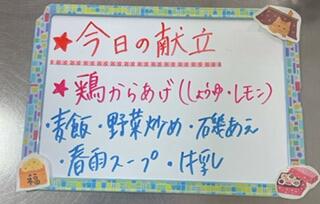 ★今日の献立
★鶏からあげ(しょうゆ・レモン)
・麦飯・野菜炒め・磯あえ
・春雨スープ・牛乳
福